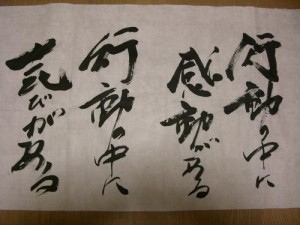 行動の中に
感動がある
行動の中に
喜びがある